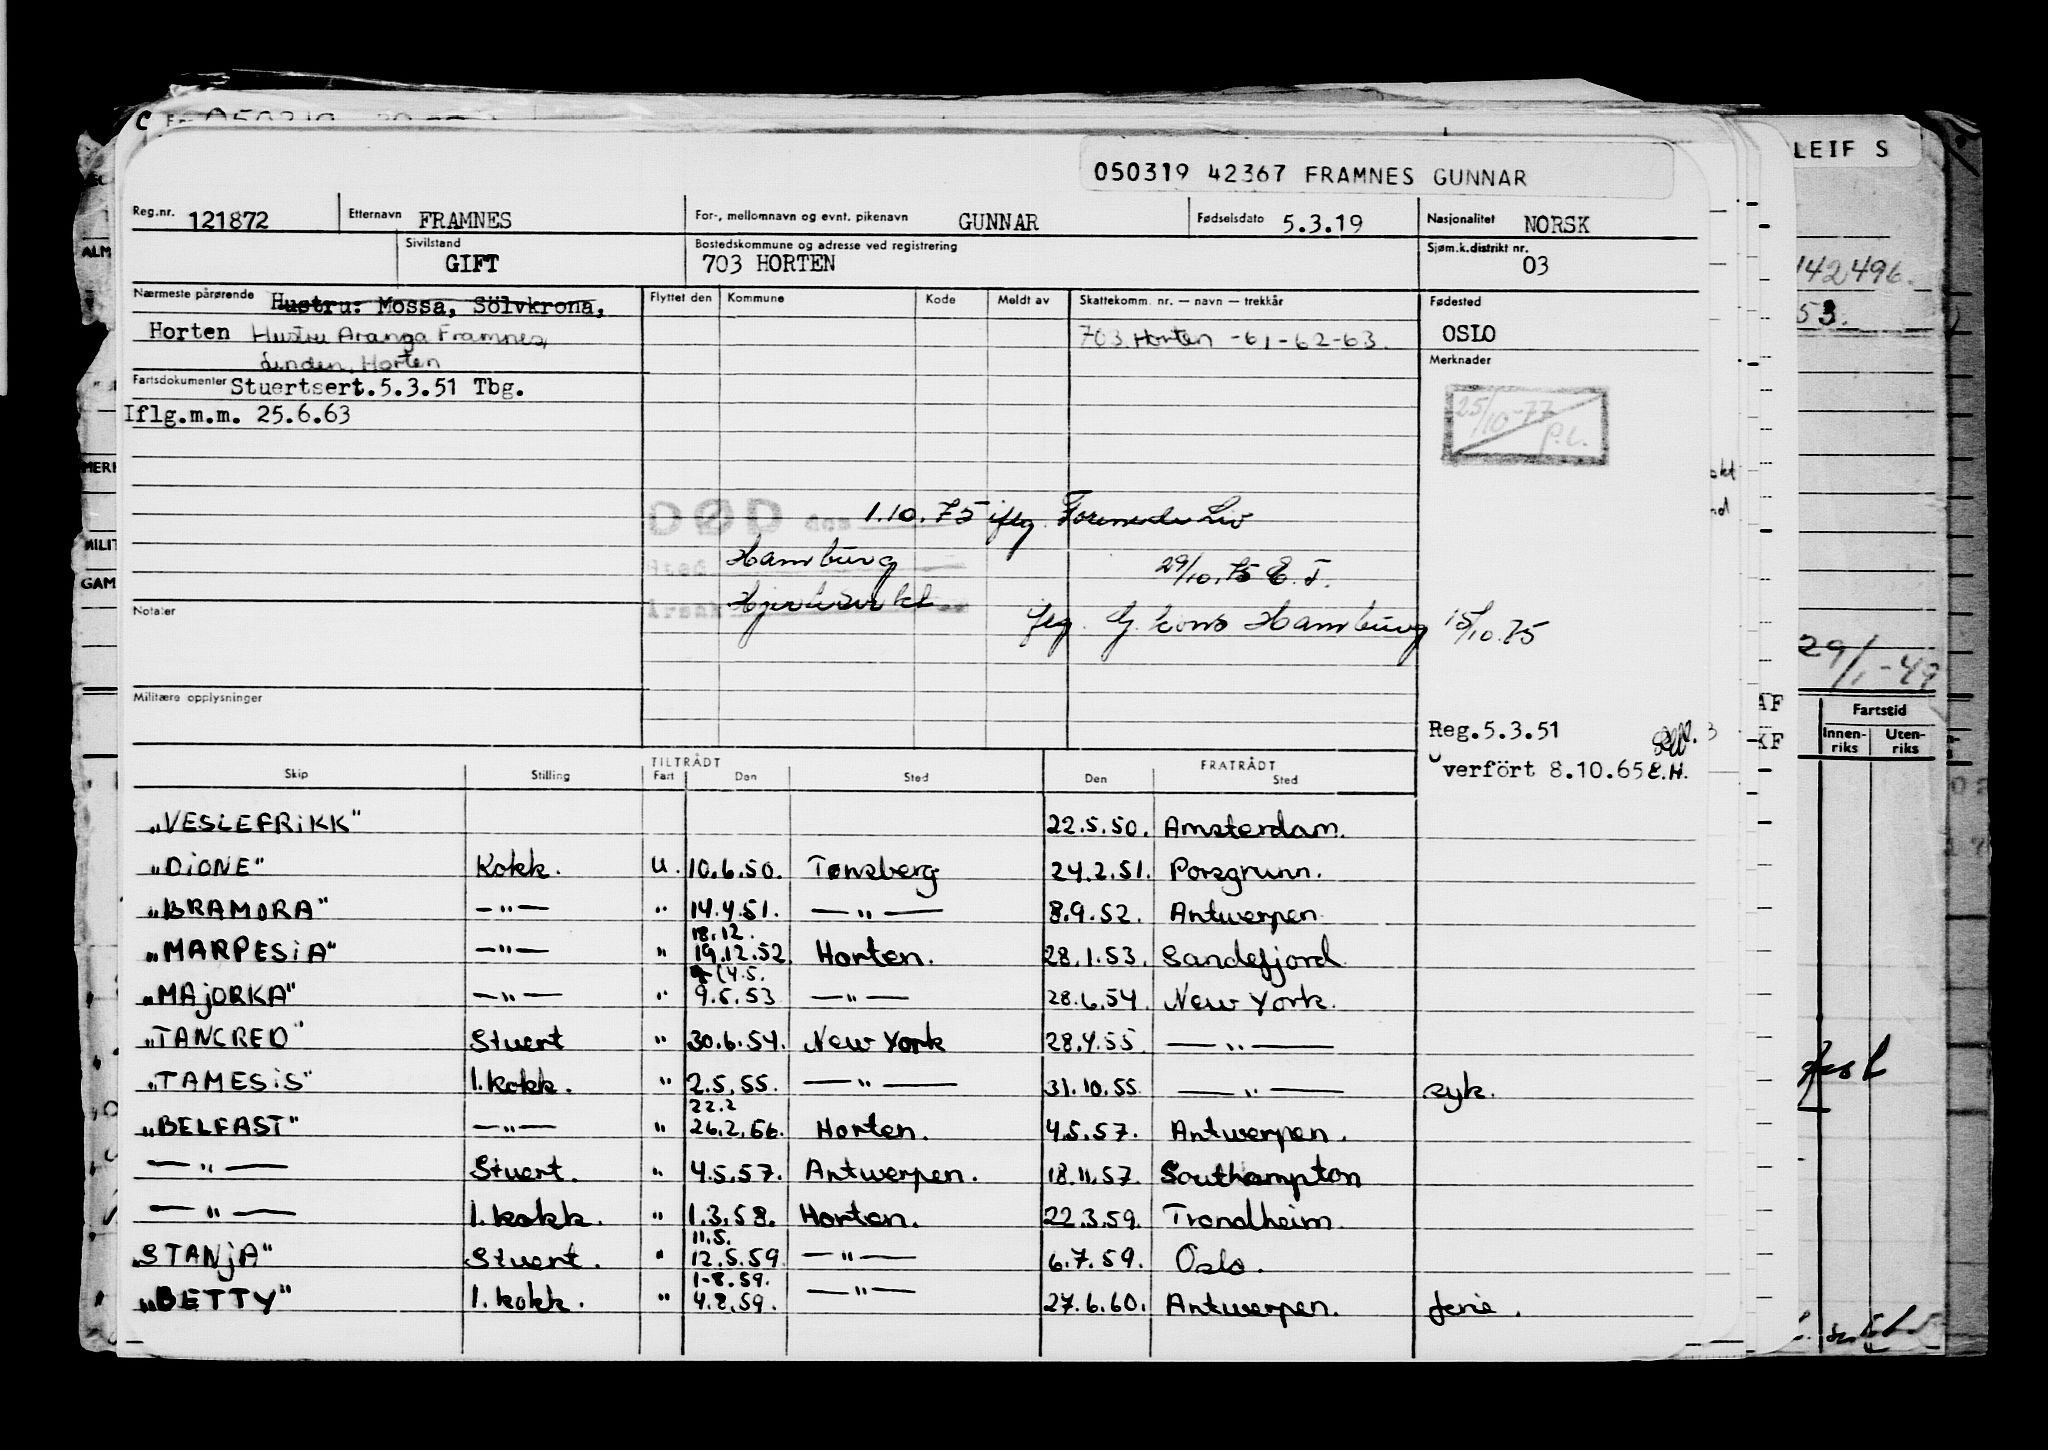 050319 42367 FRAMNES GUNNAR
LEIF S
Reg.nr. 121872 Etternavn FRAMNES For-, mellomnavn og evnt. pikenavn GUNNAR Fødselsdato 5.3.19 Nasjonalitet NORSK
Sivilstand GIFT Bostedskommune og adresse ved registrering 703 HORTEN Sjøm.k.distrikt nr. 03
Nærmeste pårørende Hustru: Mossa, Sölvkrona, Flyttet den Kommune Kode Meldt av Skattekomm. nr. — navn — trekkår Fødested
Horten Hustru Aranga Framnes, 703 Horten -61-62-63. OSLO
Linden, Horten Merknader
Fartsdokumenter Stuertsert.5.3.51 Tbg.
Iflg.m.m. 25.6.63
25/10-77 P.L.
DØD den 1.10.75 iflg.
Sted Hamburg 29/10.75 E.T.
Årsak
iflg. G. kons Hamburg 15/10.75
Notater
Militære opplysninger
Reg.5.3.51
Overfört 8.10.65 E.H.
Skip Stilling TILTRÅDT Fart Den Sted FRATRÅDT Den Sted
„VESLEFRIKK" 22.5.50. Amsterdam.
„DIONE" Kokk. U. 10.6.50. Tønsberg 24.2.51. Porsgrunn.
„BRAMORA" —"— " 14.4.51. —"— 8.9.52. Antwerpen.
18.12.
„MARPESIA" —"— " 19.12.52. Horten. 28.1.53. Sandefjord
(4.5.
„MAJORKA" —"— " 9.5.53 —"— 28.6.54. New York.
„TANCRED" Stuert " 30.6.54. New York 28.4.55. —"—
„TAMESIS" 1.kokk. " 2.5.55. —"— 31.10.55. —"— syk.
22.2
„BELFAST" —"— " 26.2.56. Horten. 4.5.57. Antwerpen.
—"— Stuert. " 4.5.57. Antwerpen. 18.11.57. Southampton
—"— 1.kokk. " 1.3.58. Horten. 22.3.59. Trondheim.
11.5.
„STANJA" Stuert. " 12.5.59. —"— 6.7.59. Oslo.
1-8.59.
„BETTY" 1.kokk. " 4.8.59. —"— 27.6.60. Antwerpen. ferie.
142496.
53.
29/1-49
Fartstid
Innen-riks Uten-riks